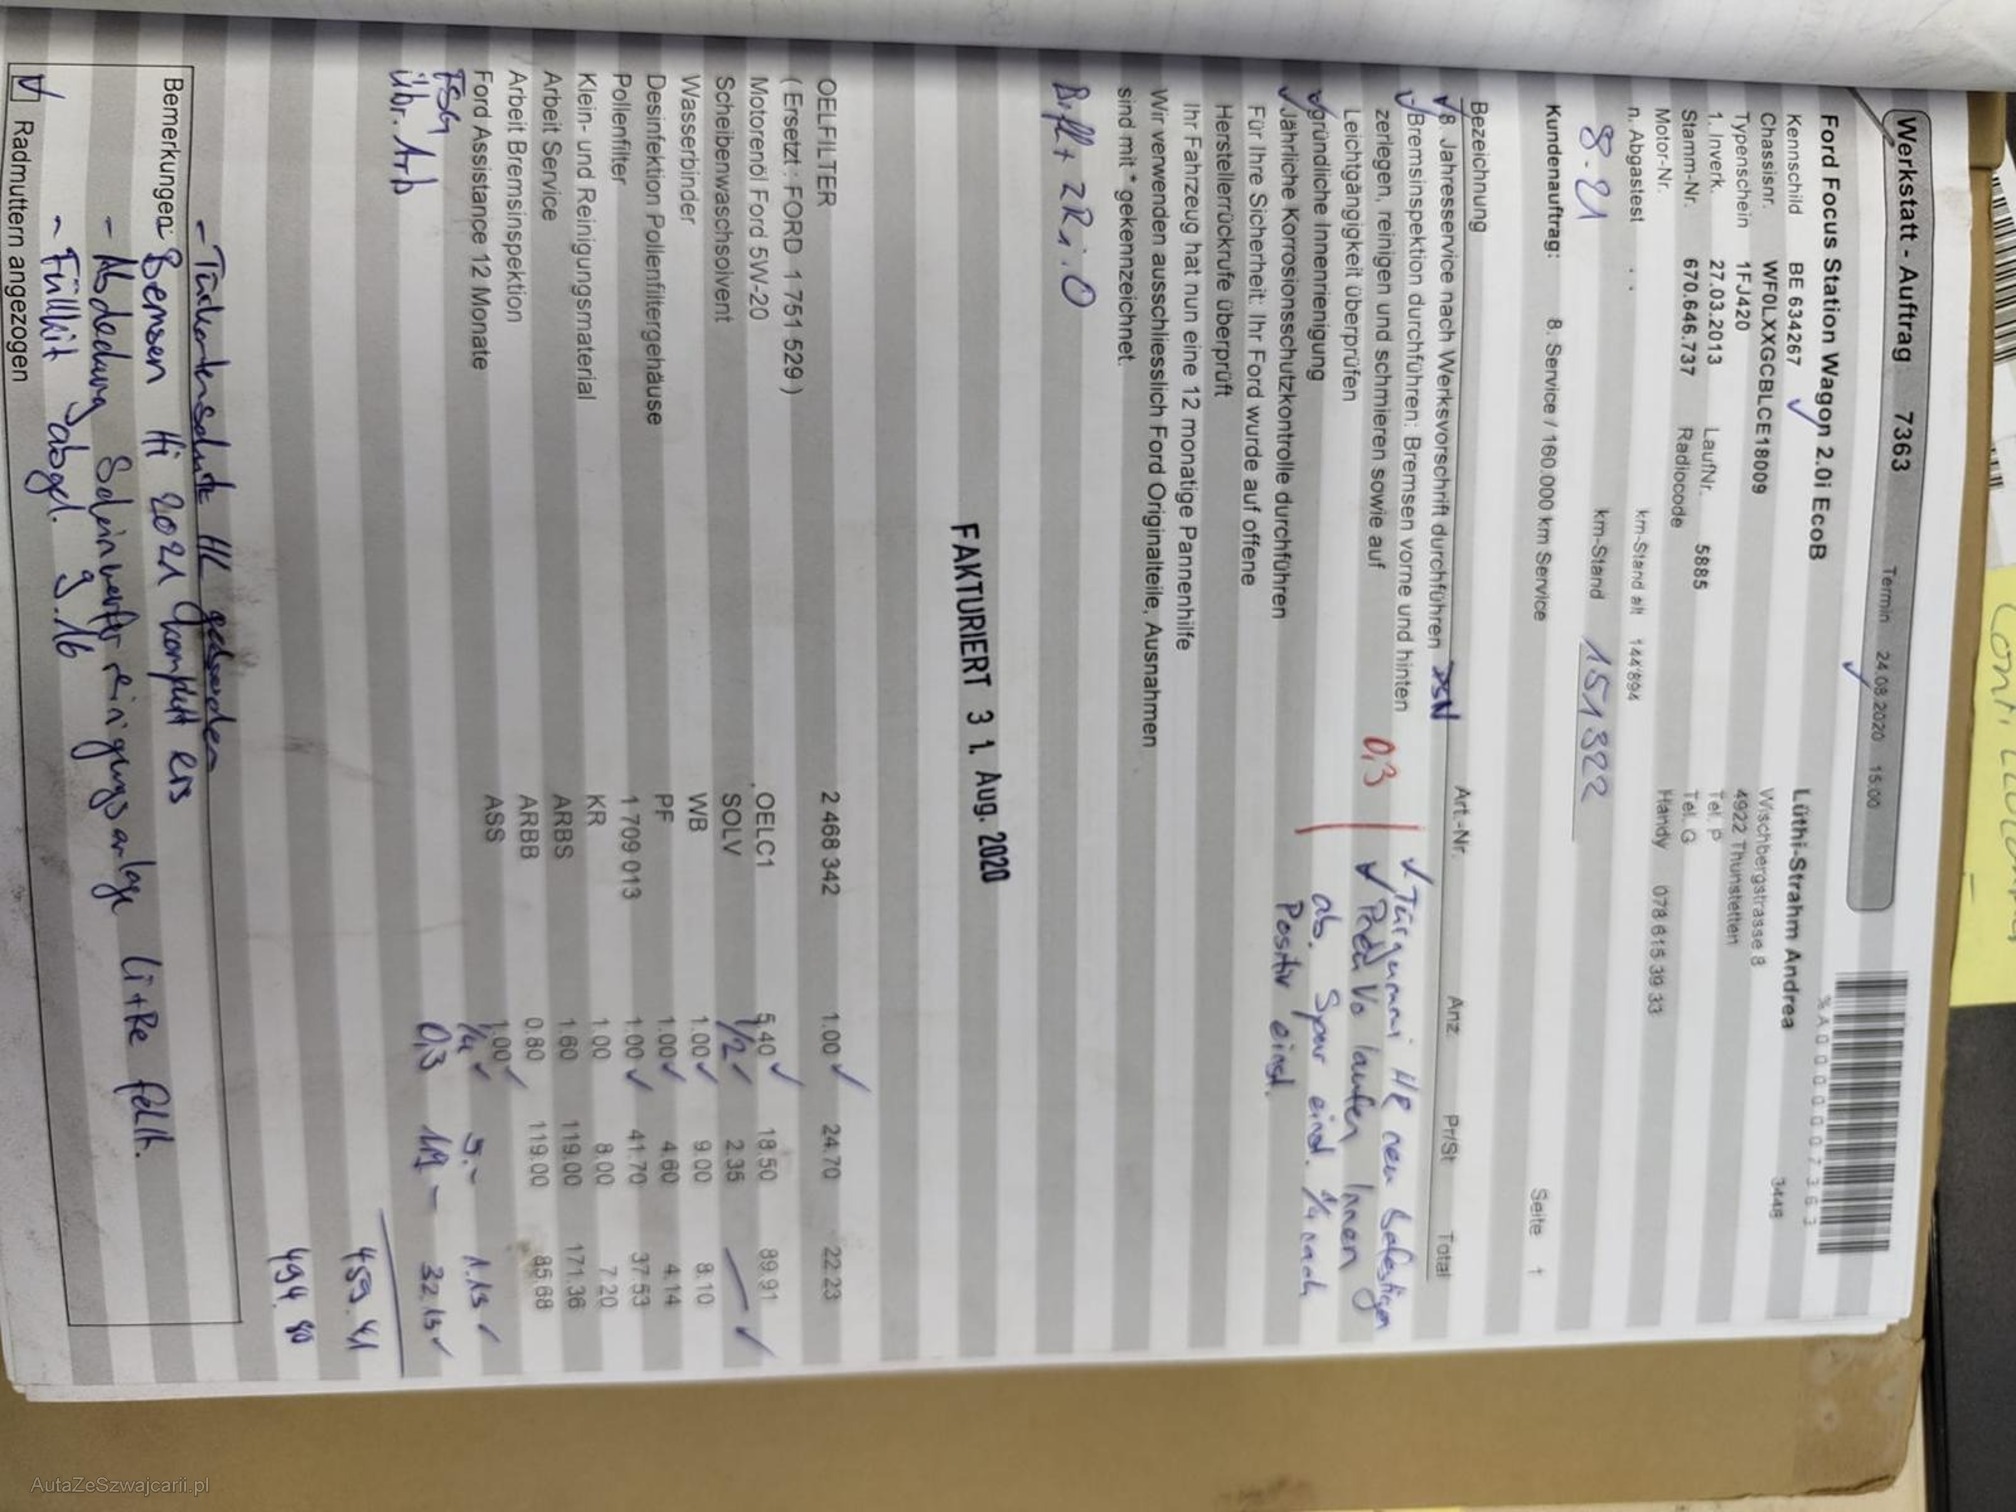 Werkstatt - Auftrag 7363 Termin 24.08.2020 15:00
%A0000007363
Ford Focus Station Wagon 2.0i EcoB
Lüthi-Strahm Andrea 3448
Kennschild BE 634267
Wischbergstrasse 8
Chassisnr. WF0LXXGCBLCE18009
4922 Thunstetten
Typenschein 1FJ420
1. Inverk. 27.03.2013 LaufNr. 5885 Tel. P
Stamm-Nr. 670.646.737 Radiocode Tel. G
Motor-Nr. Handy 078 615 39 33
n. Abgastest . . km-Stand alt 144'894
8.21 km-Stand 151322
Kundenauftrag: 8. Service / 160.000 km Service Seite 1
Bezeichnung Art.-Nr. Anz. Pr/St Total
8. Jahresservice nach Werksvorschrift durchführen
Bremsinspektion durchführen: Bremsen vorne und hinten
zerlegen, reinigen und schmieren sowie auf
Leichtgängigkeit überprüfen
gründliche Innenrienigung
Jährliche Korrosionsschutzkontrolle durchführen
Für Ihre Sicherheit: Ihr Ford wurde auf offene
Herstellerrückrufe überprüft
Ihr Fahrzeug hat nun eine 12 monatige Pannenhilfe
Wir verwenden ausschliesslich Ford Originalteile, Ausnahmen
sind mit * gekennzeichnet.
0,3
Türgummi HR neu befestigen
Vo laufen Innen
ab. Spur einst. 1/4 nach
Positiv einst.
FAKTURIERT 3 1. Aug. 2020
OELFILTER 2 468 342 1.00 24.70 22.23
( Ersetzt : FORD 1 751 529 )
Motorenöl Ford 5W-20 OELC1 5.40 18.50 89.91
Scheibenwaschsolvent SOLV 1/2 2.35
Wasserbinder WB 1.00 9.00 8.10
Desinfektion Pollenfiltergehäuse PF 1.00 4.60 4.14
Pollenfilter 1 709 013 1.00 41.70 37.53
Klein- und Reinigungsmaterial KR 1.00 8.00 7.20
Arbeit Service ARBS 1.60 119.00 171.36
Arbeit Bremsinspektion ARBB 0.80 119.00 85.68
Ford Assistance 12 Monate ASS 1.00
FSG 1/4
Übr. Arb 0,3 32.13
459.41
494.80
Bemerkungen:
Bremsen Hi 2021 komplett ers
- Abdeckung Scheinwerferreinigungsanlage fehlt.
- Füllkit abgel. 9.16
Radmuttern angezogen
AutaZeSzwajcarii.pl